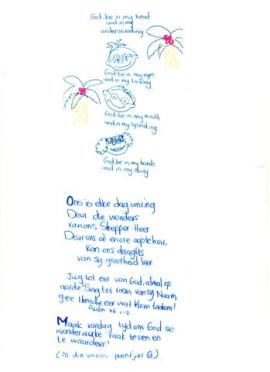 God be in my head
and in my
understanding
God be in my eyes
and in my looking
God be in my mouth
and in my speaking
God be in my hands
and in my doing
Ons is elke dag omring
Deur die wonders
van ons Skepper Heer
Deur ons oë en ore oop te hou,
Kan ons daagliks
van sy grootheid leer
Juig tot eer van God, almal op
aarde! Sing tot roem van sy Naam,
gee Hom die eer wat Hom toekom!
Psalm 66 1-2
Maak vandag tyd om God se
wonderwerke raak te
en te waardeer!
(Al die mooi